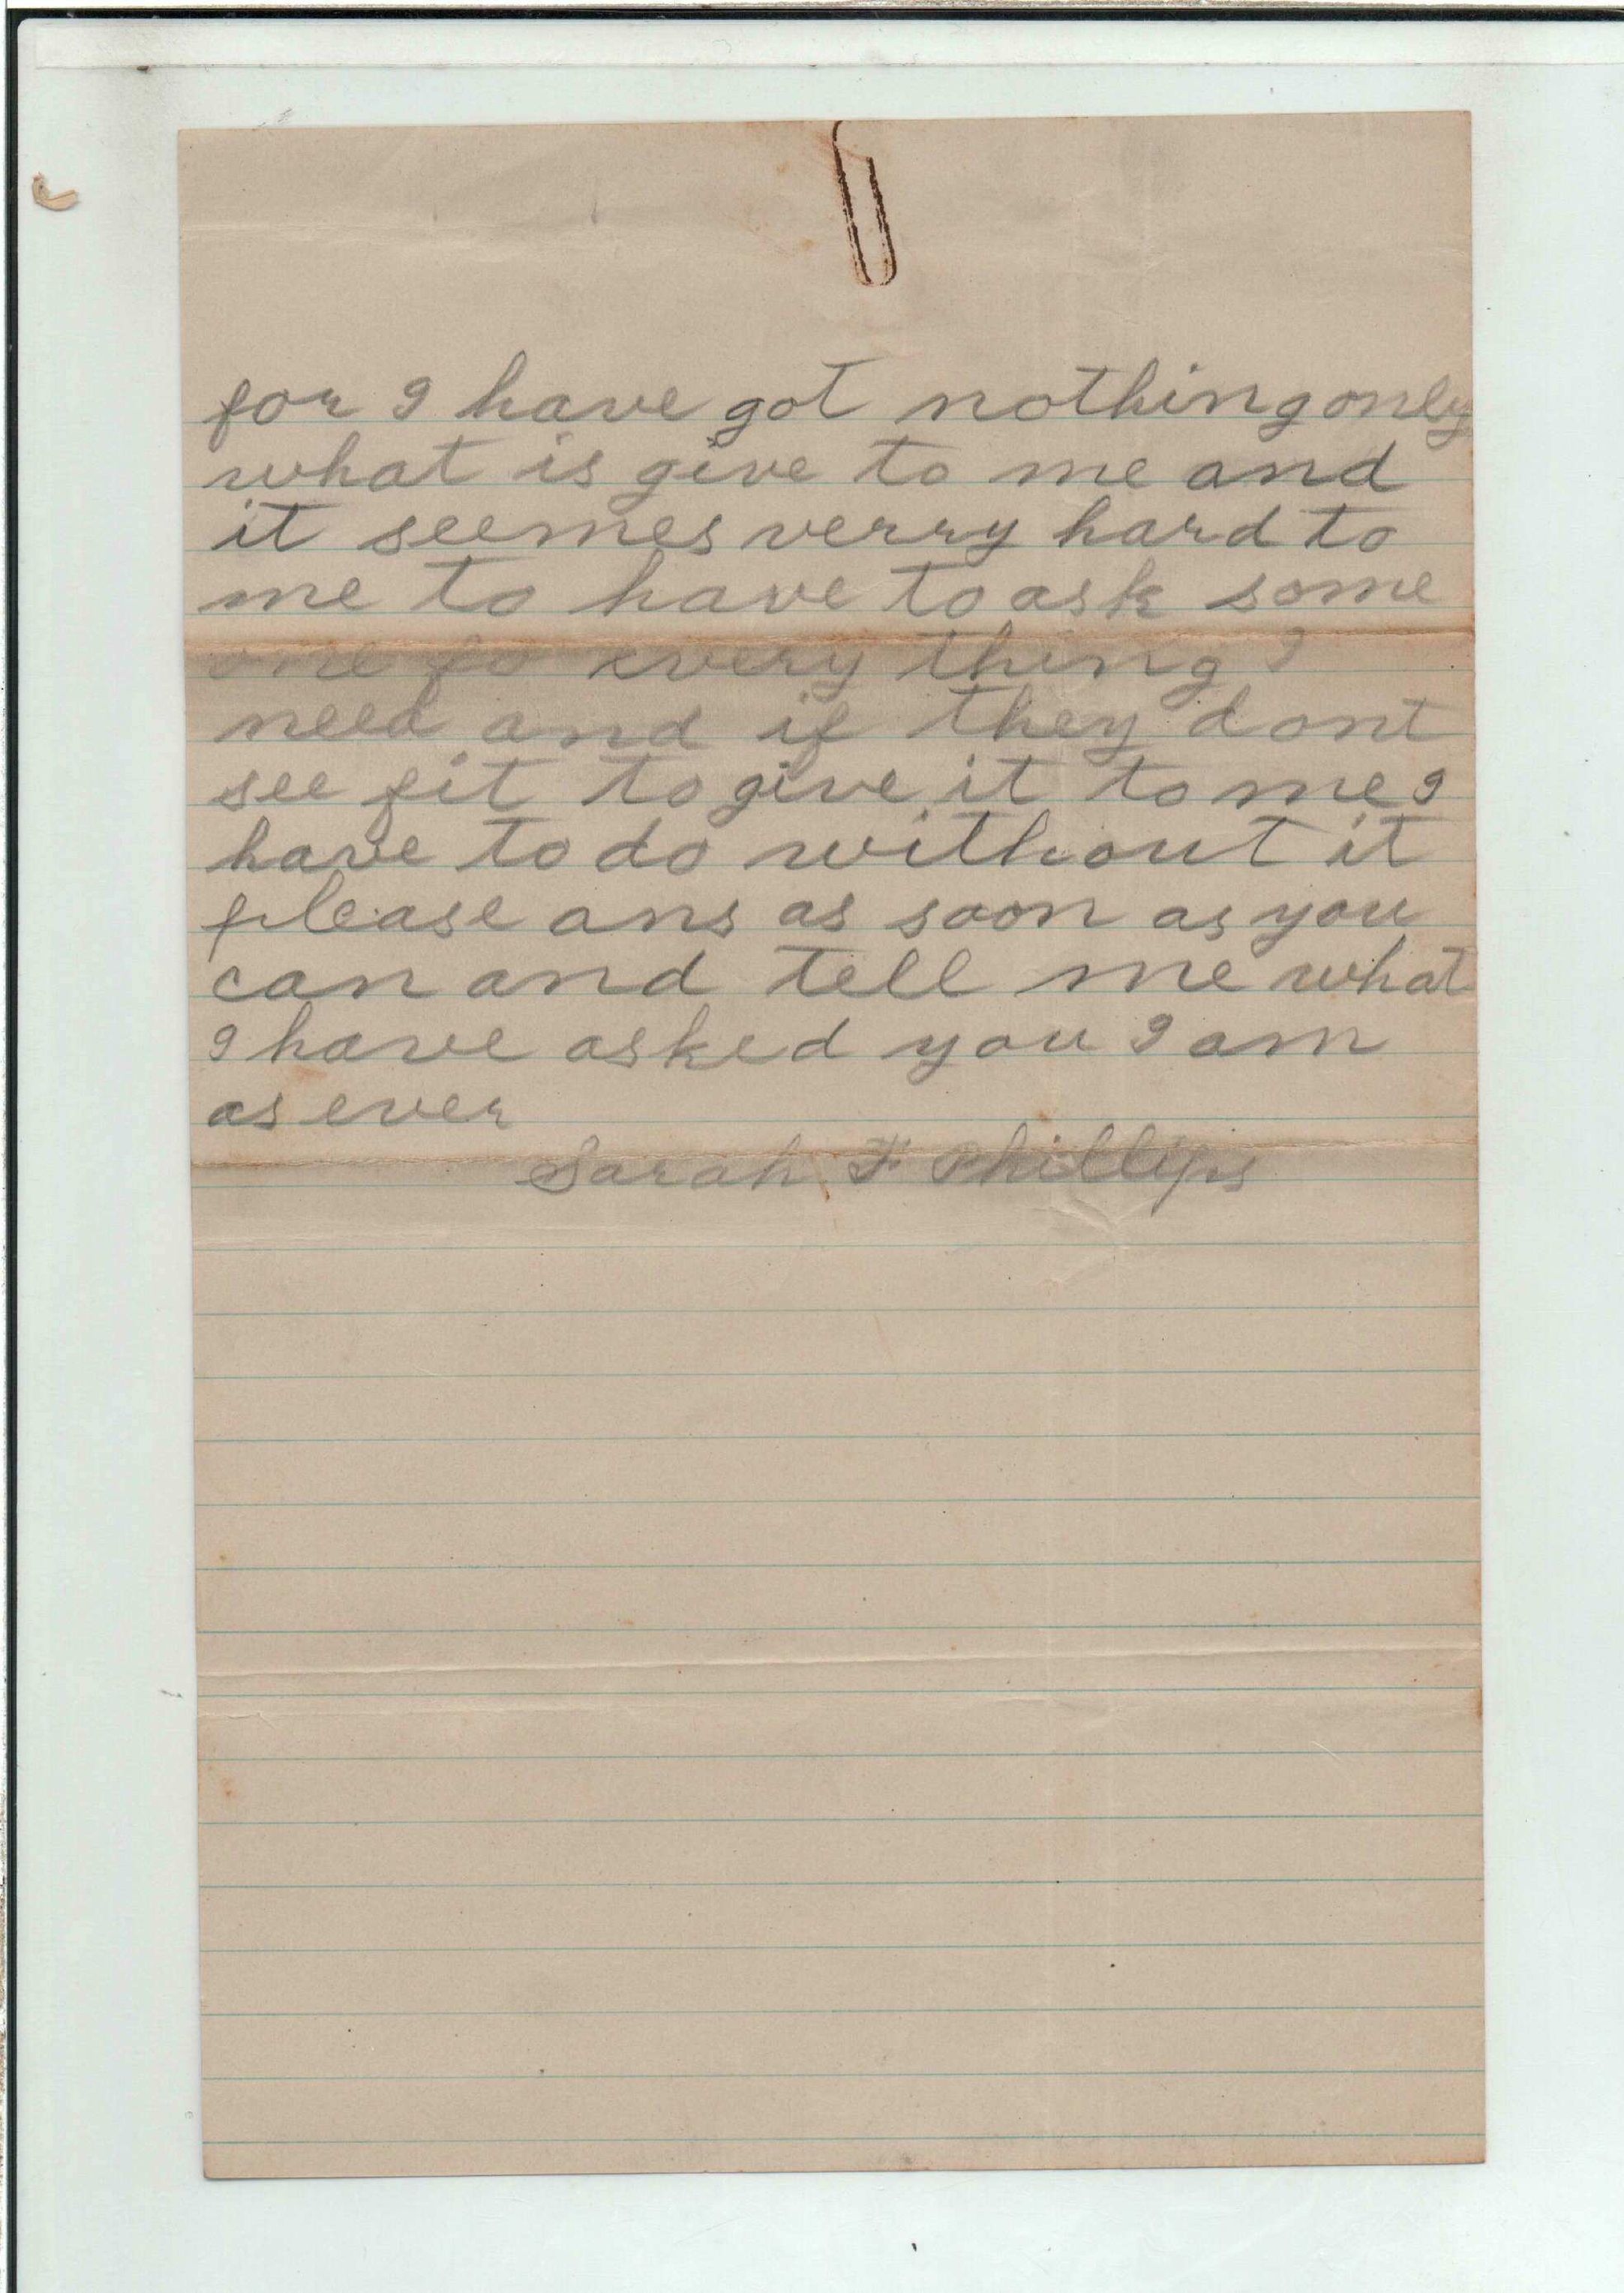 for I have got nothing only
what is give to me and
it seemes verry hard to
me to have to ask some
one fo every thing I
need and if they dont
see fit to give it to me I
have to do without it
please ans as soon as you
can and tell me what
I have asked you I am
as ever
Sarah F Phillips